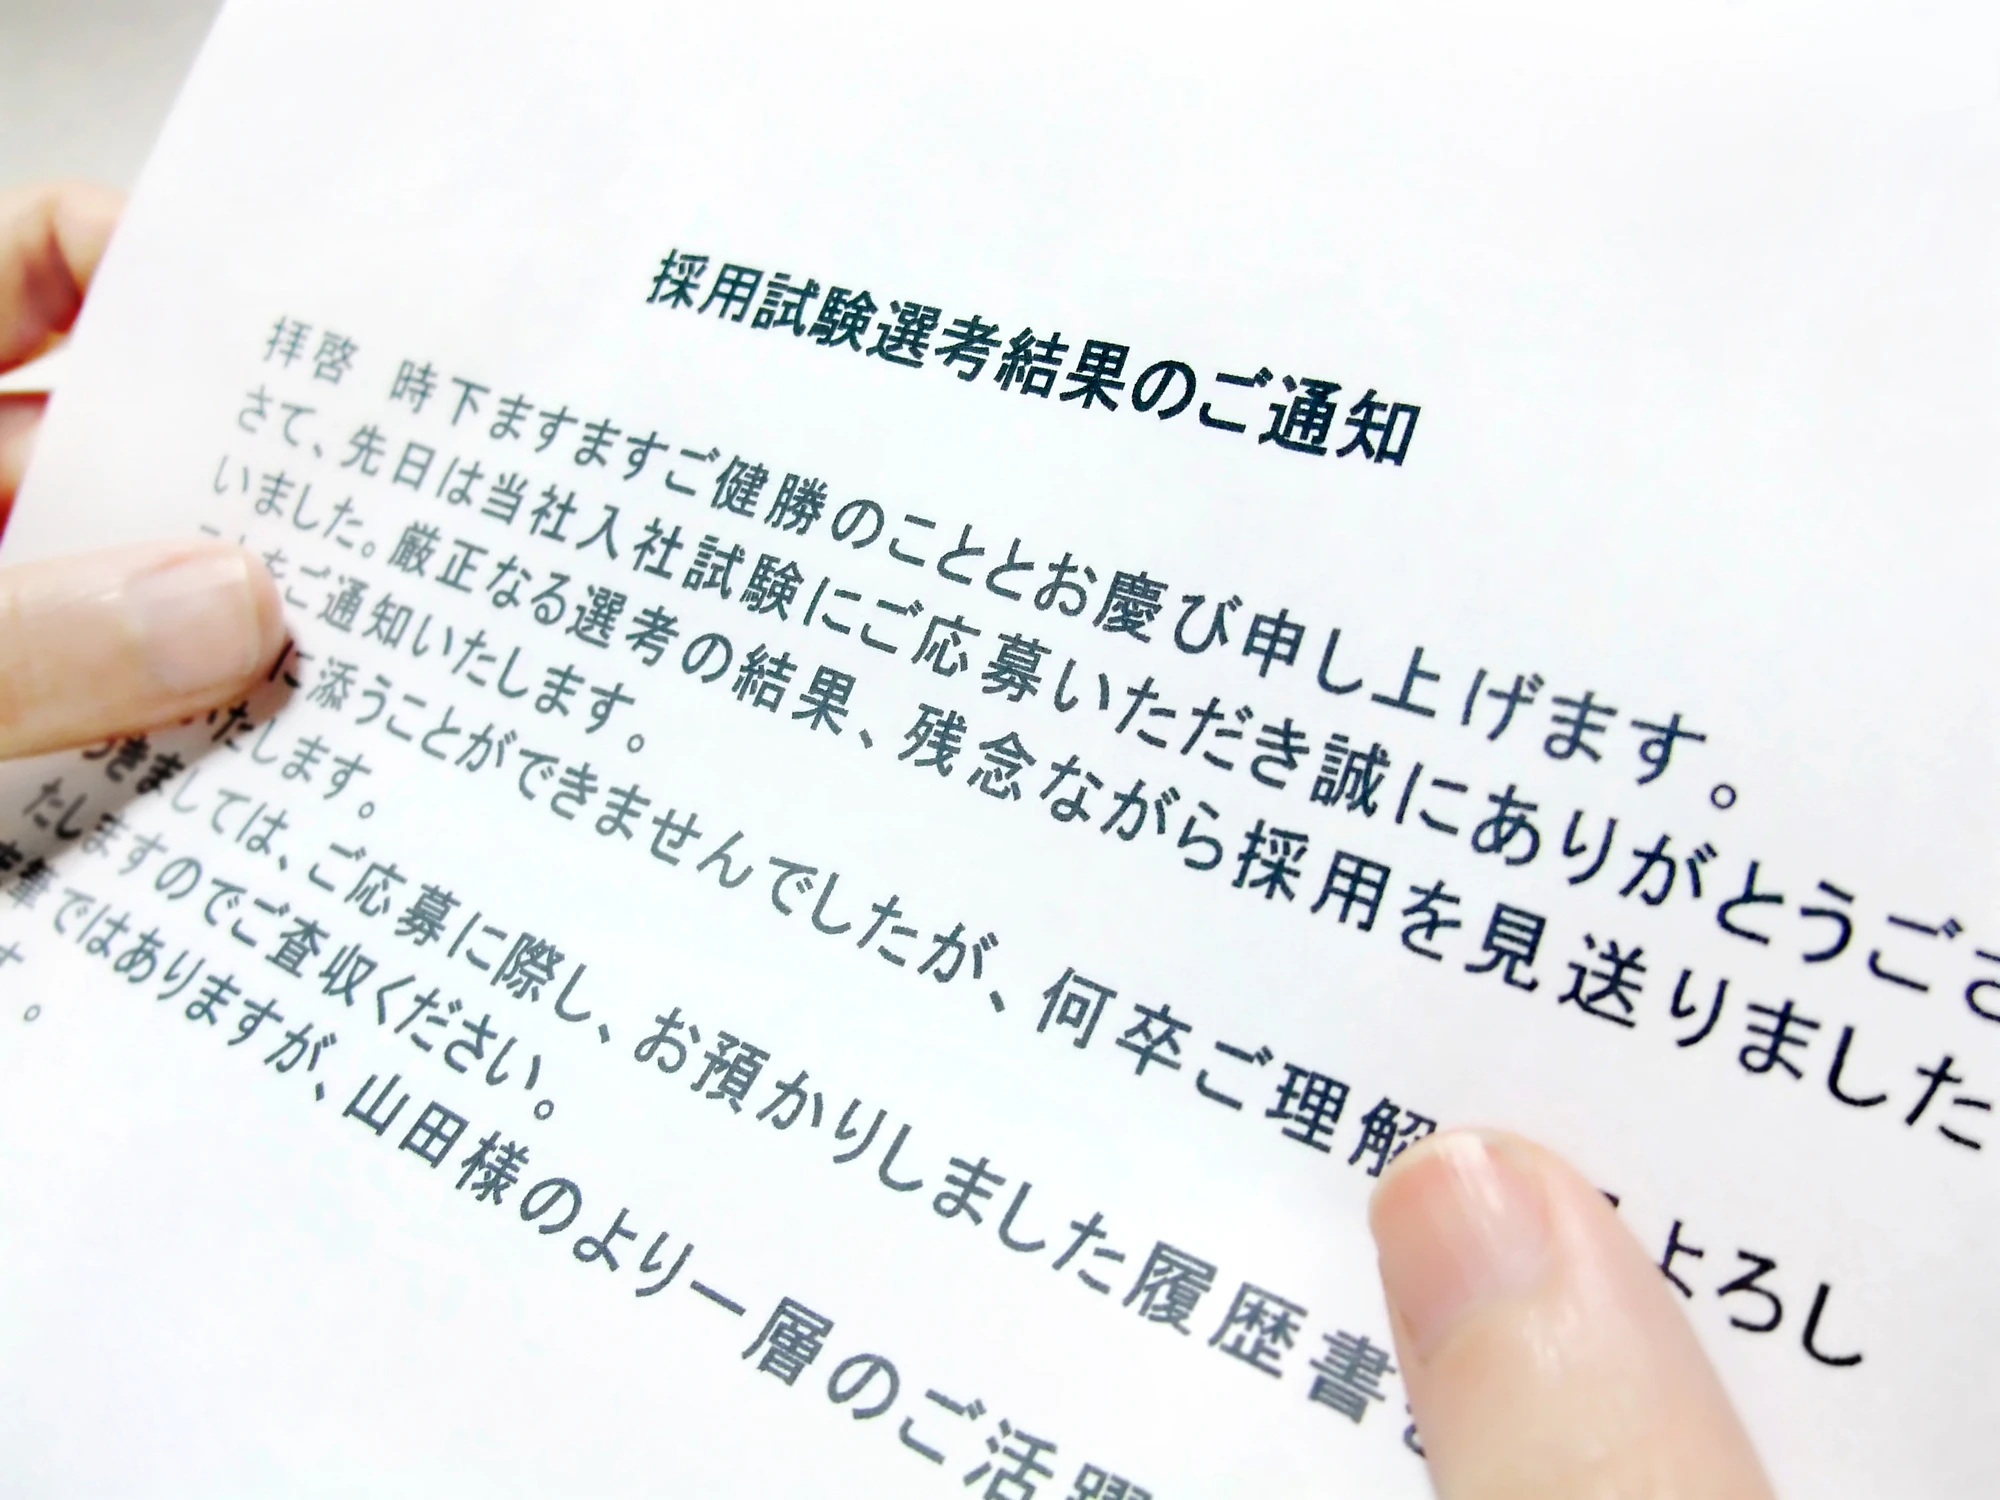 採用試験選考結果のご通知
拝啓　時下ますますご健勝のこととお慶び申し上げます。
さて、先日は当社入社試験にご応募いただき誠にありがとうござ
いました。厳正なる選考の結果、残念ながら採用を見送りました
ことをご通知いたします。
に添うことができませんでしたが、何卒ご理解 よろし
いたします。
つきましては、ご応募に際し、お預かりしました履歴書
たしますのでご査収ください。
末筆ではありますが、山田様のより一層のご活躍
す。